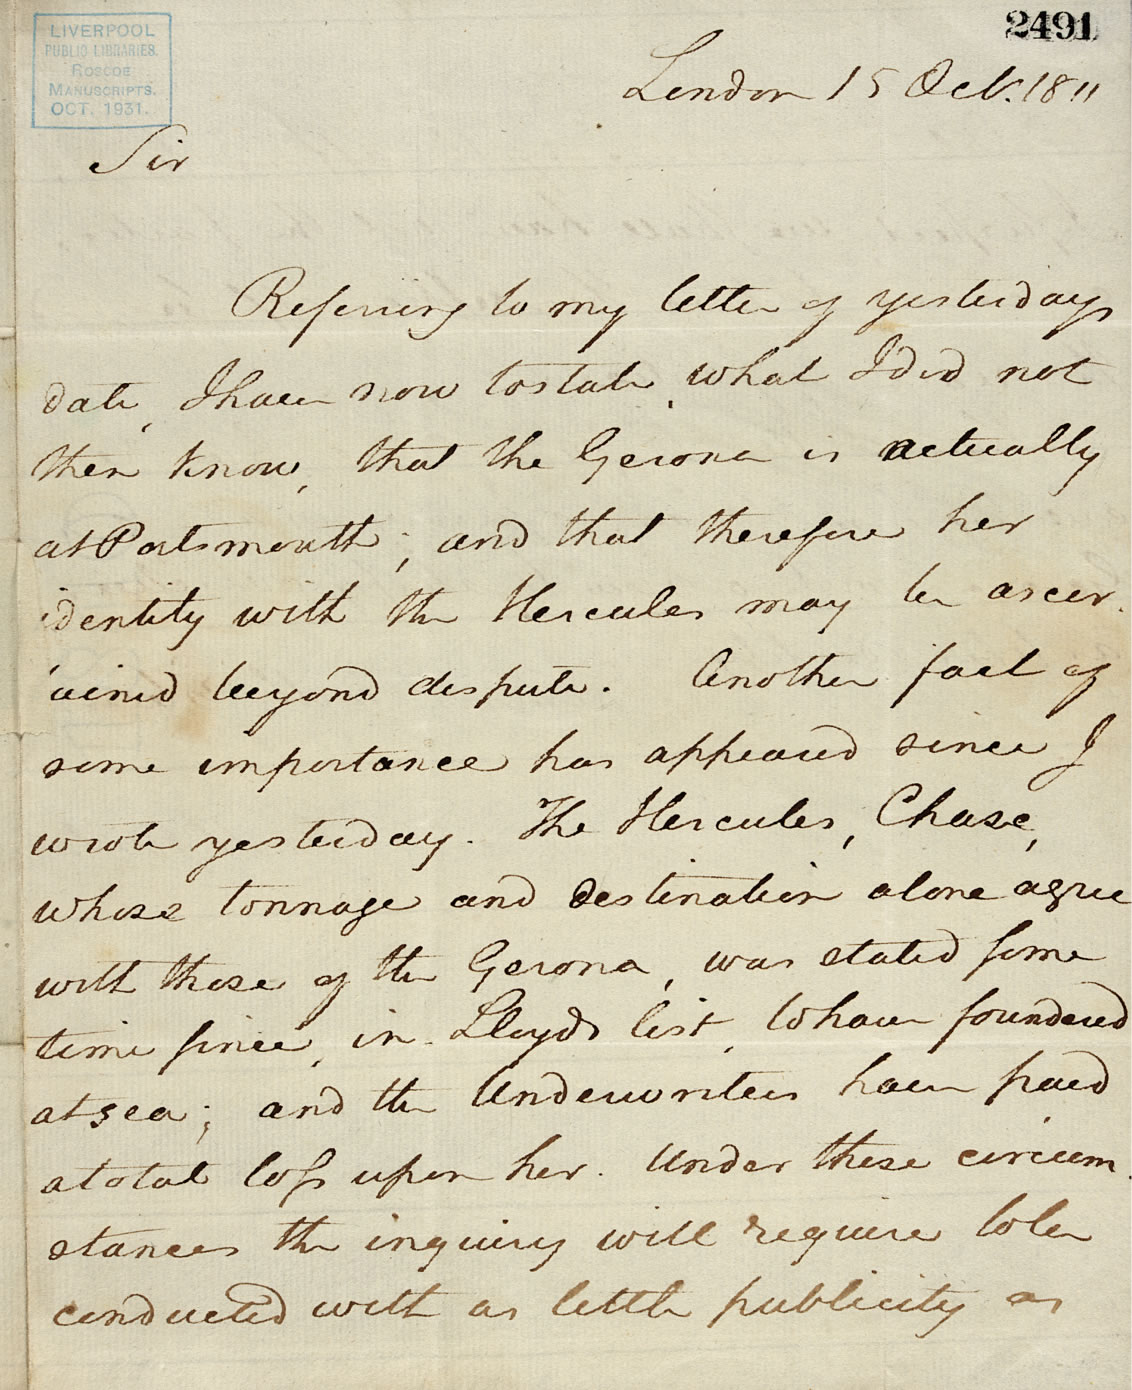 2491
LIVERPOOL
PUBLIC LIBRARIES.
ROSCOE
MANUSCRIPTS.
OCT. 1931.
London 15 Oct. 1811
Sir
Referring to my letter of yesterdays
date, I have now to state, what I did not
then know, that the Gerona is actually
at Portsmouth; and that therefore her
identity with the Hercules may be ascer-
tained beyond dispute. Another fact of
some importance has appeared since I
wrote yesterday. The Hercules, Chase,
whose tonnage and destination alone agree
with those of the Gerona, was stated some
time since, in Lloyds list, to have foundered
at sea; and the Underwriters have paid
a total loss upon her. Under these circum-
stances the inquiry will require to be
conducted with as little publicity as